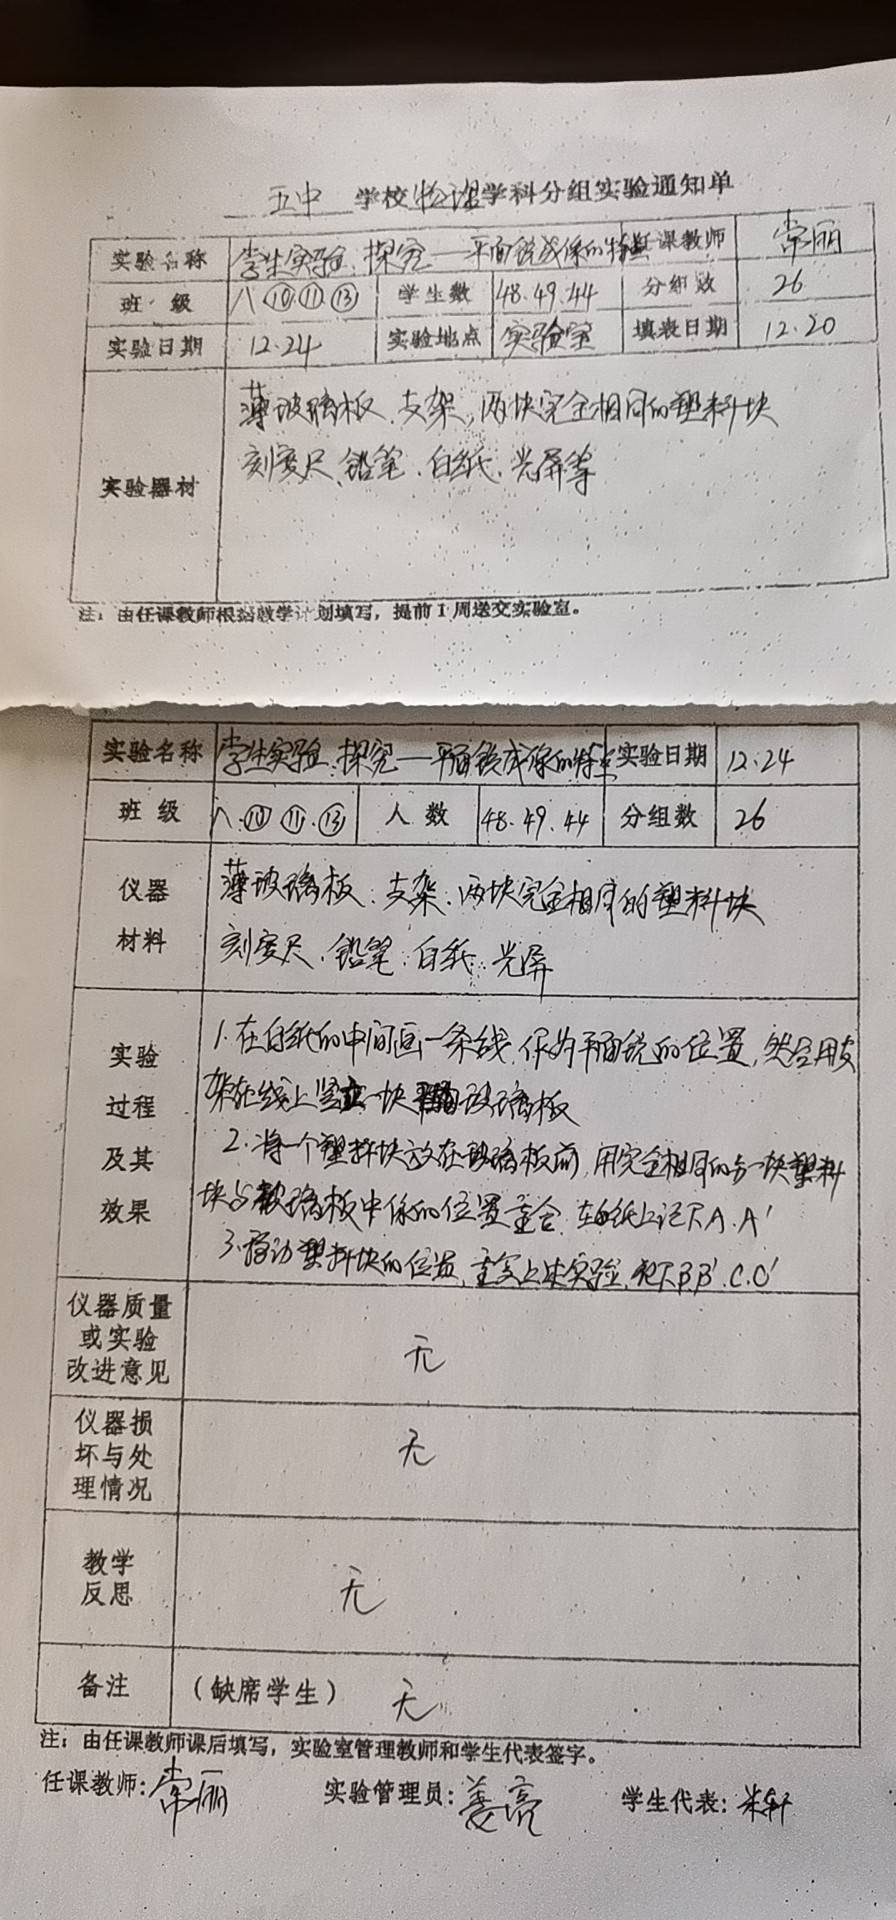 五中 学校物理学科分组实验通知单
实验名称 学生实验:探究——平面镜成像的特点 任课教师 常丽
班 级 八⑩⑪⑬ 学生数 48.49.44 分组数 26
实验日期 12.24 实验地点 实验室 填表日期 12.20
实验器材
薄玻璃板、支架,两块完全相同的塑料块
刻度尺、铅笔、白纸、光屏等
注:由任课教师根据教学计划填写,提前1周送交实验室。
实验名称 学生实验:探究——平面镜成像的特点 实验日期 12.24
班 级 八.⑩⑪.⑬ 人 数 48.49.44 分组数 26
仪器
材料
薄玻璃板、支架、两块完全相同的塑料块
刻度尺、铅笔、白纸、光屏
实验
过程
及其
效果
1.在白纸的中间画一条线,作为平面镜的位置,然后用支
架在线上竖立一块玻璃板
2.将一个塑料块放在玻璃板前,用完全相同的另一块塑料
块与玻璃板中像的位置重合,在白纸上记下A.A'
3.移动塑料块的位置,重复上述实验,记下B.B'.C.C'
仪器质量
或实验
改进意见
无
仪器损
坏与处
理情况
无
教学
反思
无
备注 (缺席学生) 无
注:由任课教师课后填写,实验室管理教师和学生代表签字。
任课教师:常丽 实验管理员:姜亮 学生代表:米轩